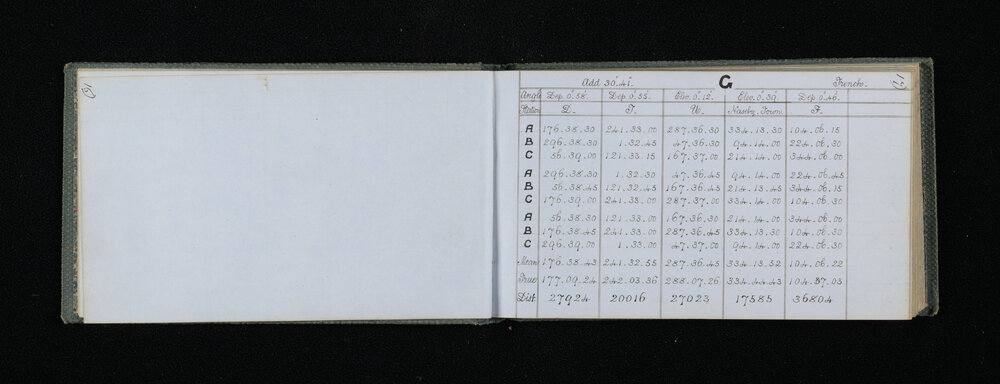 Add 30'.41". G French.
Angle Dep. 0°.58'. Dep. 0°.55'. Elev. 0°.12'. Elev. 0°.39'. Dep. 0°.46'.
Station D. T. U. Naseby Town. F.
A 176.38.30 241.33.00 287.36.30 334.13.30 104.06.15
B 296.38.30 1.32.45 47.36.30 94.14.00 224.06.30
C 56.39.00 121.33.15 167.37.00 214.14.00 344.06.00
A 296.38.30 1.32.30 47.36.45 94.14.00 224.06.45
B 56.38.45 121.32.45 167.36.45 214.13.45 344.06.15
C 176.39.00 241.33.00 287.37.00 334.14.00 104.06.30
A 56.38.30 121.33.00 167.36.30 214.14.00 344.06.00
B 176.38.45 241.33.00 287.36.45 334.13.30 104.06.30
C 296.39.00 1.33.00 47.37.00 94.14.00 224.06.30
Mean 176.38.43 241.32.55 287.36.45 334.13.52 104.06.22
True 177.09.24 242.03.36 288.07.26 334.44.43 104.37.03
Dist 27924 20016 27023 17585 36804